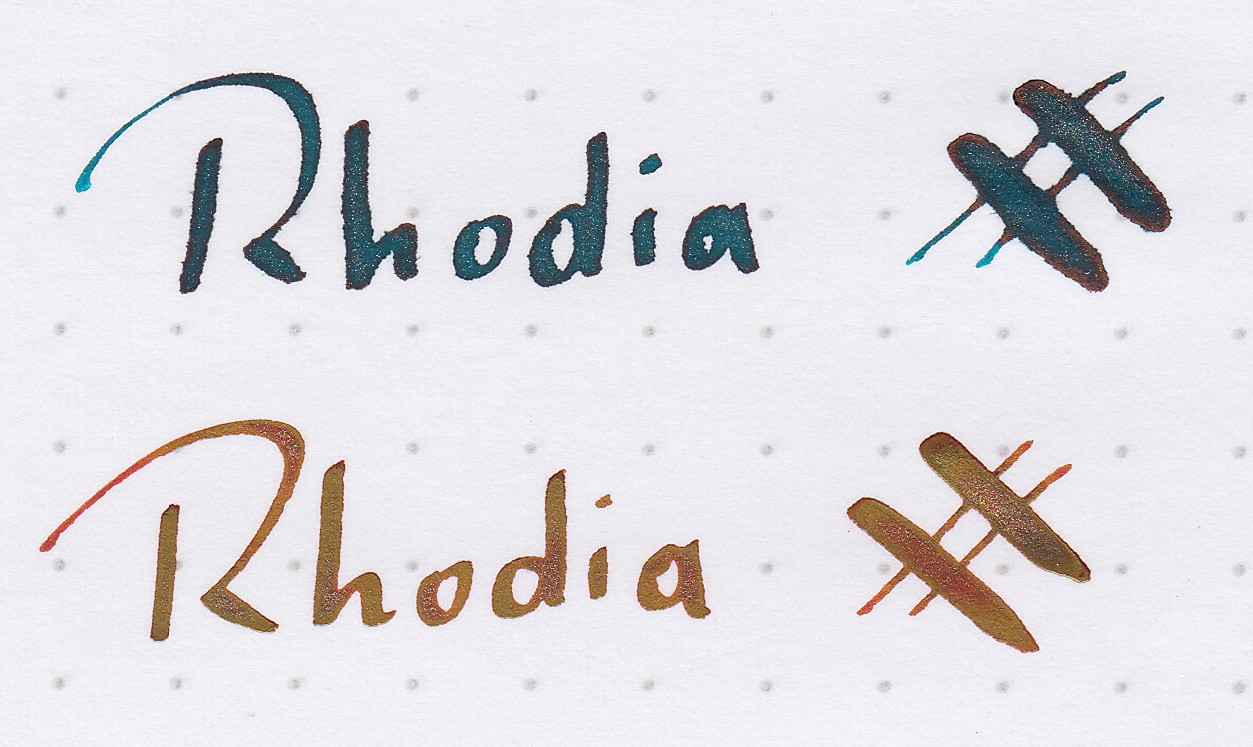 Rhodia #
Rhodia #